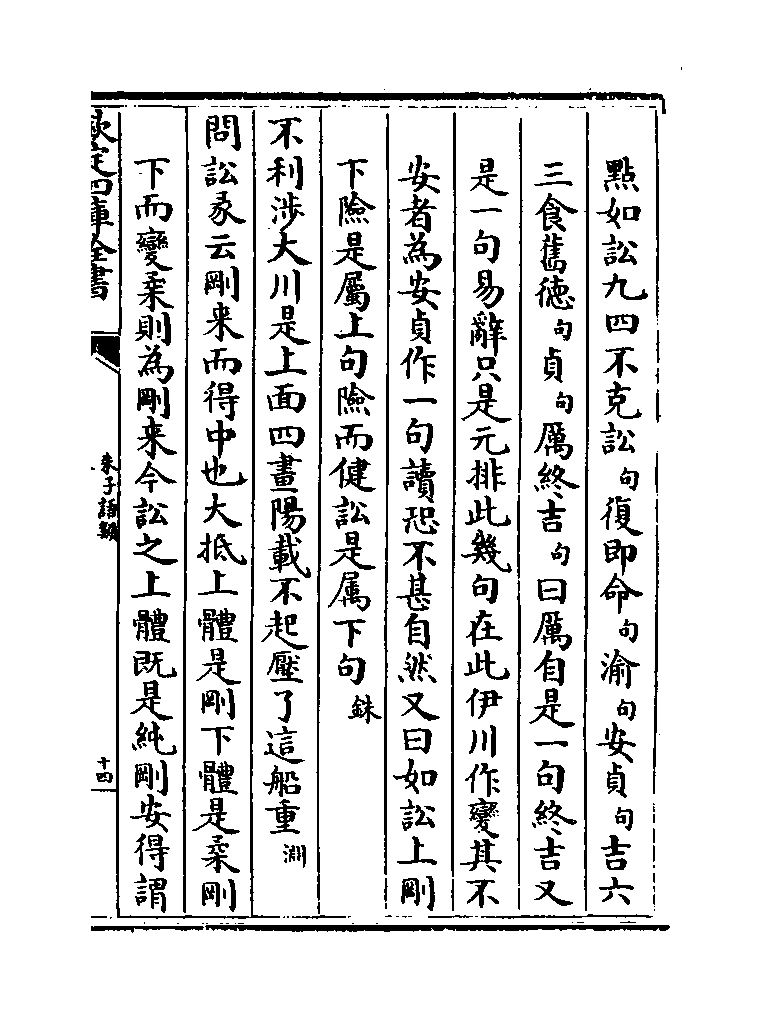 點如訟九四不克訟句復即命句渝句安貞句吉六
三食舊徳句貞句厲終吉句曰厲自是一句終吉又
是一句易辭只是元排此幾句在此伊川作變其不
安者為安貞作一句讀恐不甚自然又曰如訟上剛
下險是屬上句險而健訟是属下句銖
不利涉大川是上面四畫陽載不起壓了這船重淵
問訟彖云剛来而得中也大抵上體是剛下體是柔剛
下而變柔則為剛来今訟之上體既是純剛安得謂
欽定四庫全書
朱子語類
十四